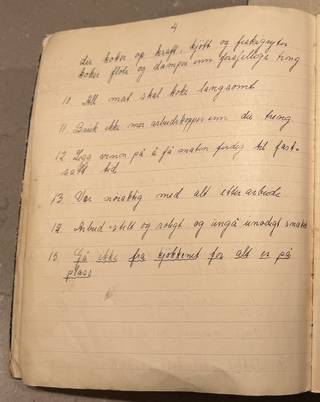 4
der koker op kraft, kjøtt og fiskegryter
koker fløte og damper inn forskjellige ting
10. All mat skal koke langsomt
11. Bruk ikke mer arbeidskopper enn du treng
12. Legg vinn på å få maten ferdig til fast-
satt tid
13. Vær nøiaktig med alt etterarbeide
14. Arbeid stilt og roligt og ungå unødigt snakk
15. Gå ikke fra kjøkkenet før alt er på
plass